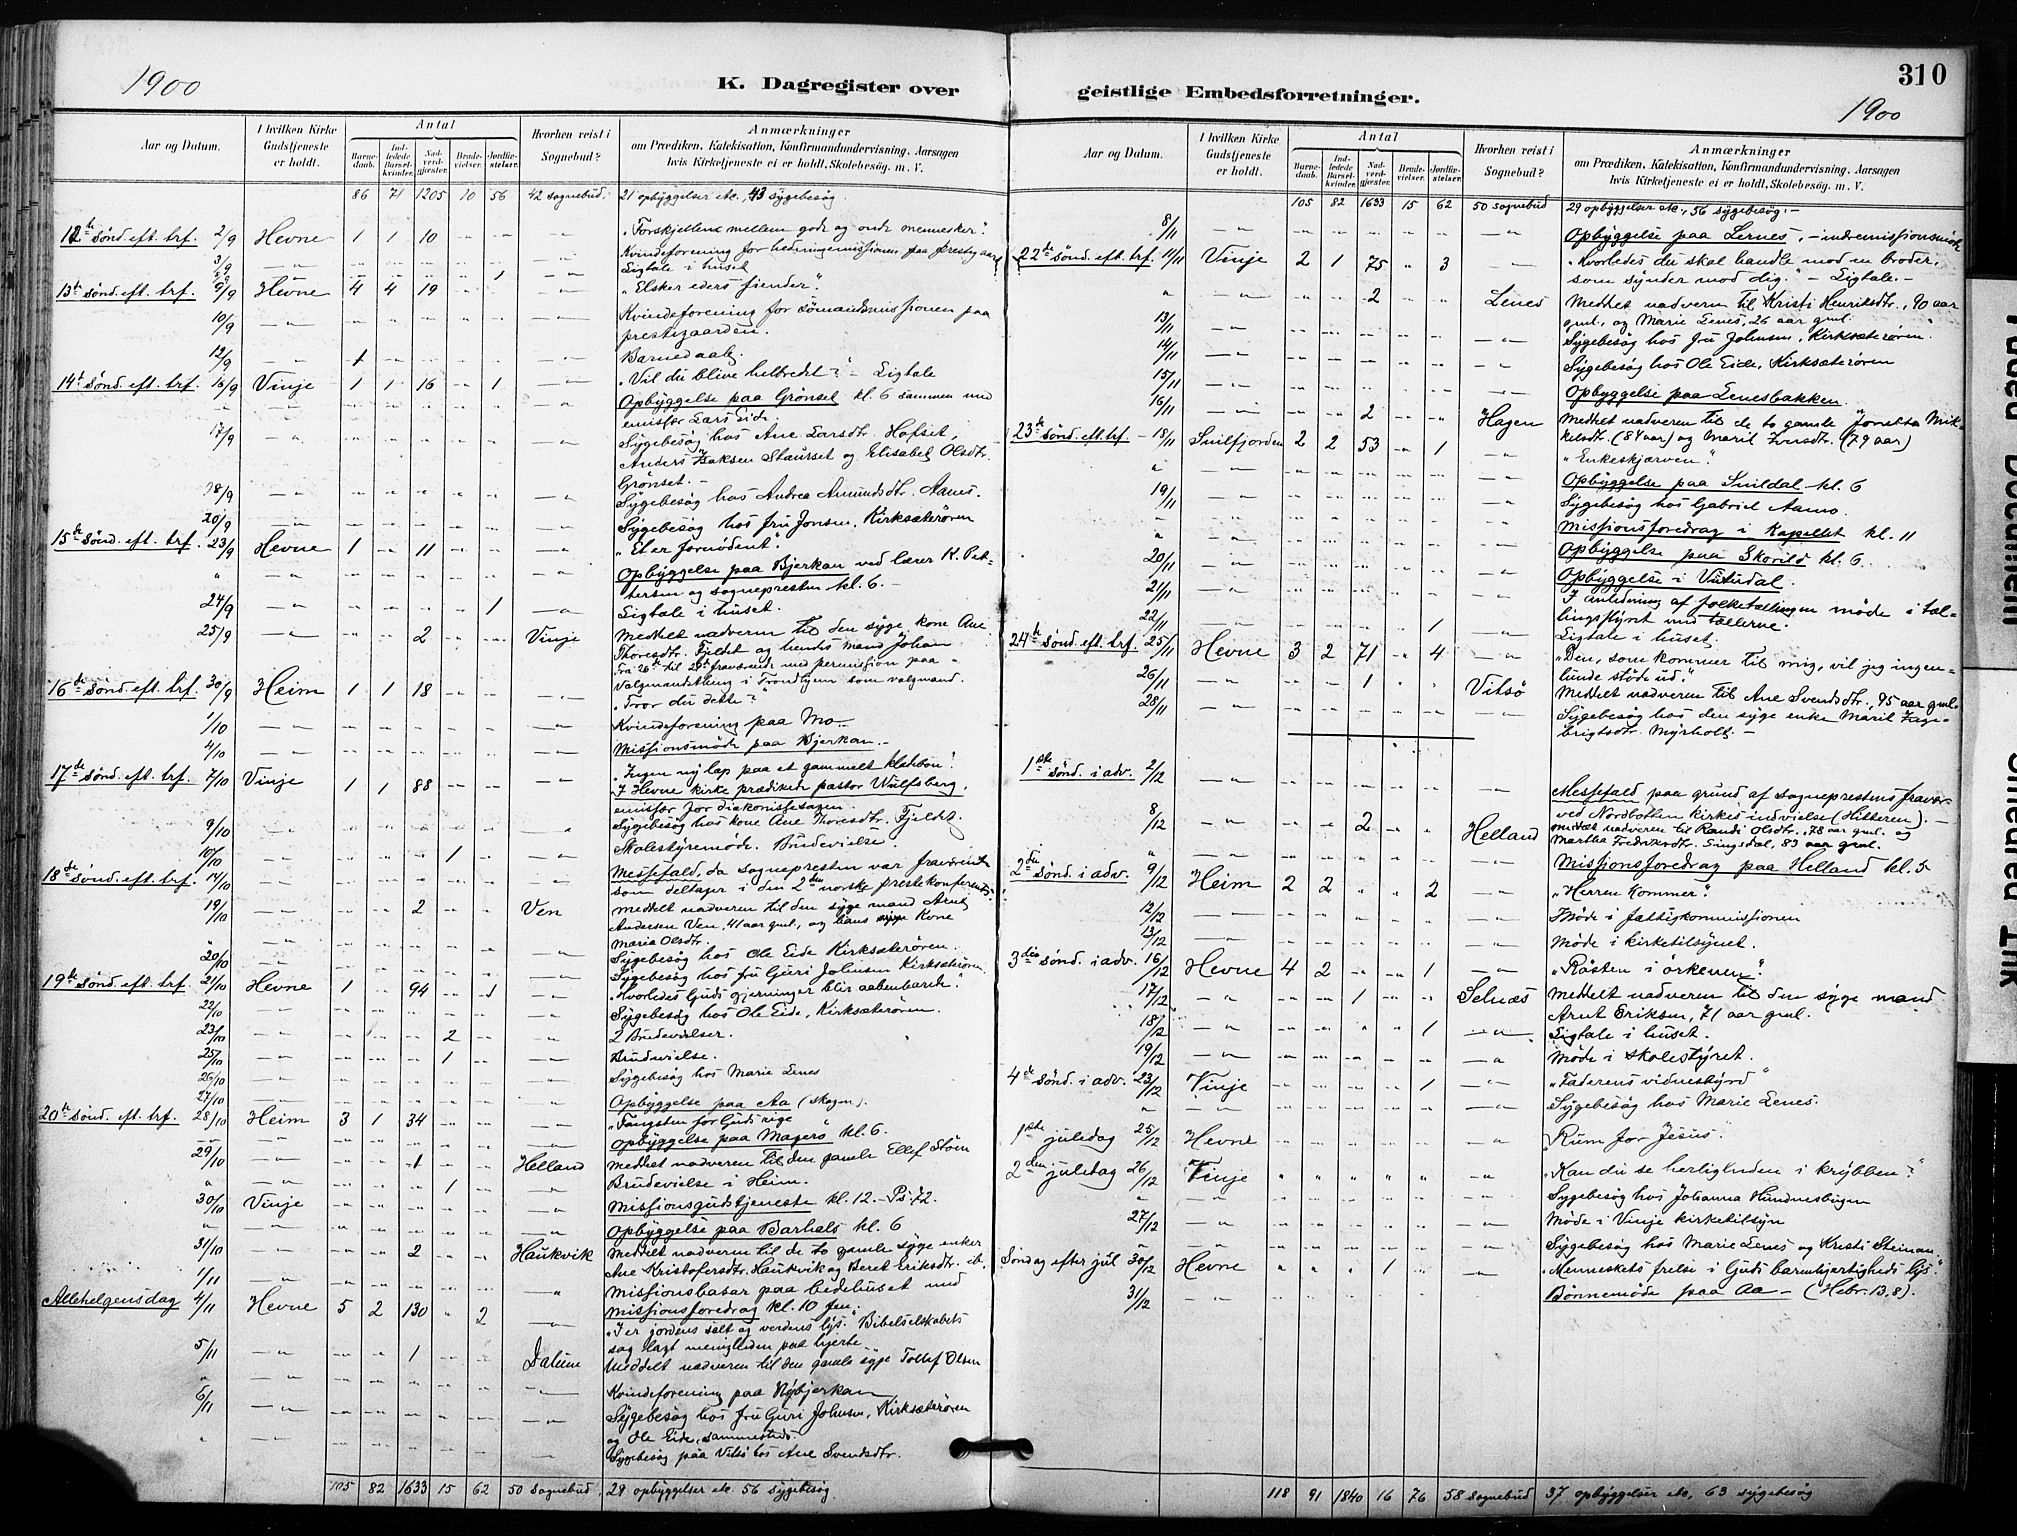 1900
K. Dagregister over
Aar og Datum.
I hvilken Kirke Gudstjeneste er holdt.
Antal
Barnedaab.
Indledede Barselkvinder.
Nadverdgjester.
Brudevielser.
Jordfæstelser.
Hvorhen reist i Sognebud?
Anmærkninger
om Prædiken, Katekisation, Konfirmandundervisning, Aarsagen
hvis Kirketjeneste ei er holdt, Skolebesøg. m. V.
86 71 1205 10 56 42 sognebud. 21 opbyggelser etc., 43 sygebesøg
12te sønd. eft. trf. 2/9 Hevne 1 1 10 „Forskjellene mellem gode og onde mennesker“.
3/9 Kvindeforening for hedningemissionen paa prestegaard
Ligtale i huset
13de sønd. eft. trf. 9/9 Hevne 4 4 19 „Elsker eders fiender“.
10/9 Kvindeforening for sømandsmissionen paa
prestegaarden.
12/9 1 Barnedaab.
14de sønd. eft. trf. 16/9 Vinje 1 1 16 1 „Vil du blive helbredet?“ – Ligtale
Opbyggelse paa Grønset kl. 6 sammen med
emissær Lars Eide.
17/9 Sygebesøg hos Ane Larsdtr. Hofset,
Anders Isaksen Staurset og Elisabet Olsdtr.
Grønset. –
18/9 Sygebesøg hos Andrea Amundsdtr. Aanes.
20/9 Sygebesøg hos fru Jonsen, Kirksæterøren
15de sønd. eft. trf. 23/9 Hevne 1 11 „Et er fornødent“.
Opbyggelse paa Bjerkan ved lærer K. Pet-
tersen og sognepresten kl. 6. –
24/9 1 Ligtale i huset.
25/9 2 Vinje Meddelt nadveren til den syge kone Ane
Thoresdtr. Fjeldet og hendes mand Johan
Fra 26de til 29de fraværende med permission paa
Valgmandsthing i Trondhjem som valgmand.
16de sønd. eft. trf. 30/9 Heim 1 1 18 „Tror du dette?“
1/10 Kvindeforening paa Mo. –
4/10 Missionsmøde paa Bjerkan. –
17de sønd. eft. trf. 7/10 Vinje 1 1 88 „Ingen ny lap paa et gammelt klædebon“!
I Hevne kirke prædikede pastor Wulfsberg,
emissær for diakonissesagen.
9/10 Sygebesøg hos kone Ane Thoresdtr. Fjeldet.
10/10 1 Skolestyremøde. Brudevielse.
18de sønd. eft. trf. 14/10 Messefald, da sognepresten var fraværende
som deltager i den 2den norske prestekonferents.
19/10 2 Ven Meddelt nadveren til den syge mand Arnt
Andersen Ven, 41 aar gml., og hans kone
Maria Olsdtr.
20/10 Sygebesøg hos Ole Eide Kirksæterøren.
Sygebesøg hos fru Guri Johnsen Kirksæterøren
19de sønd. eft. trf. 21/10 Hevne 1 94 1 „Hvorledes Guds gjerninger blir aabenbarede“.
22/10 Sygebesøg hos Ole Eide, Kirksæterøren.
23/10 2 2 Brudevielser.
25/10 1 Brudevielse.
26/10 Sygebesøg hos Marie Lenes
27/10 Opbyggelse paa Aa (Skogen).
20de sønd. eft. trf. 28/10 Heim 3 1 34 „Fangsten for Guds rige
Opbyggelse paa Magerø kl. 6.
29/10 1 Helland Meddelt nadveren til den gamle Ellef Støen
1 Brudevielse i Heim.
30/10 Vinje Missionsgudstjeneste kl. 12. – Ps. 72.
Opbyggelse paa Barhals kl. 6
31/10 2 Haukvik Meddelt nadveren til de to gamle syge enker
Ane Kristofersdtr. Haukvik og Beret Eriksdtr. ib.
1/11 Missionsbasar paa bedehuset med
missionsforedrag kl. 10 fm.
Allehelgensdag 4/11 Hevne 5 2 130 2 „I er jordens salt og verdens lys“. Bibelselskabets
sag lagt menigheden paa hjerte.
5/11 1 Dalum Meddelt nadveren til den gamle syge Tollef Olsen
Kvindeforening paa Nybjerkan
6/11 Sygebesøg hos fru Guri Johnsen, Kirksæterøren
og Ole Eide, sammesteds.
Sygebesøg paa Vitsø hos Ane Svendsdtr.
105 82 1633 15 62 50 sognebud. 29 opbyggelser etc. 56 sygebesøg.
310
geistlige Embedsforretninger.
1900
Aar og Datum.
I hvilken Kirke Gudstjeneste er holdt.
Antal
Barnedaab.
Indledede Barselkvinder.
Nadverdgjester.
Brudevielser.
Jordfæstelser.
Hvorhen reist i Sognebud?
Anmærkninger
om Prædiken, Katekisation, Konfirmandundervisning, Aarsagen
hvis Kirketjeneste ei er holdt, Skolebesøg. m. V.
105 82 1633 15 62 50 sognebud 29 opbyggelser etc., 56 sygebesøg. –
8/11 Opbyggelse paa Lenes, – indremissionsmøde
22de sønd. eft. trf. 11/11 Vinje 2 1 75 3 „Hvorledes du skal handle mod en broder,
som synder mod dig.“ – Ligtale. –
2 Lenes Meddelt nadveren til Kristi Henriksdtr., 90 aar
gml., og Marie Lenes, 26 aar gml.
13/11 Sygebesøg hos fru Johnsen, Kirksæterøren.
14/11 Sygebesøg hos Ole Eide, Kirksæterøren
15/11 Opbyggelse paa Lenesbakken.
16/11 2 Hagen Meddelt nadveren til de to gamle Jonetta Mik-
kelsdtr. (84 aar) og Maril Iversdtr. (79 aar)
23de sønd. eft. trf. 18/11 Snilfjorden 2 2 53 1 „Enkeskjærven“.
Opbyggelse paa Snildal kl. 6
19/11 Sygebesøg hos Gabriel Aamo.
Missionsforedrag i Kapellet kl. 11
Opbyggelse paa Skorild kl. 6.
20/11 Opbyggelse i Vutudal.
21/11 I anledning af folketællingen møde i tæl-
lingsstyret med tællerne.
22/11 1 Ligtale i huset.
24de sønd. eft. trf. 25/11 Hevne 3 2 71 4 „Den, som kommer til mig, vil jeg ingen-
lunde støde ud.“
26/11 1 Vitsø Meddelt nadveren til Ane Svendsdtr., 95 aar gml.
28/11 Sygebesøg hos den syge enke Maril Inge-
brigtsdtr. Myrholt. –
1ste sønd. i adv. 2/12 Messefald paa grund af sogneprestens fravær
ved Nordbotten kirkes indvielse (Hitteren). –
8/12 2 Helland Meddelt nadveren til Randi Olsdtr., 78 aar gml. og
Martha Fredriksdtr. Singsdal, 83 aar gml.
Missionsforedrag paa Helland kl. 5
2den sønd. i adv. 9/12 Heim 2 2 2 „Herren kommer“.
12/12 Møde i fattigkommissionen
13/12 Møde i kirketilsynet.
3die sønd. i adv. 16/12 Hevne 4 2 1 „Røsten i ørkenen“.
17/12 1 Selnæs Meddelt nadveren til den syge mand
Arnt Eriksen, 71 aar gml.
18/12 1 Ligtale i huset.
19/12 Møde i skolestyret.
4de sønd. i adv. 23/12 Vinje 1 „Faderens vidnesbyrd“
Sygebesøg hos Marie Lenes.
1ste juledag 25/12 Hevne „Rum for Jesus“.
2den juledag 26/12 Vinje „Kan du se herligheden i krybben?“
Sygebesøg hos Johanna Hundnesbugen
27/12 Møde i Vinje kirketilsyn
Sygebesøg hos Marie Lenes og Kristi Steinan.
Søndag efter jul 30/12 Hevne 1 „Menneskets frelse i Guds barmhjertigheds lys“.
31/12 Bønnemøde paa Aa – (Hebr. 13,8).
118 91 1840 16 76 58 sognebud 37 opbyggelser etc., 63 sygebesøg